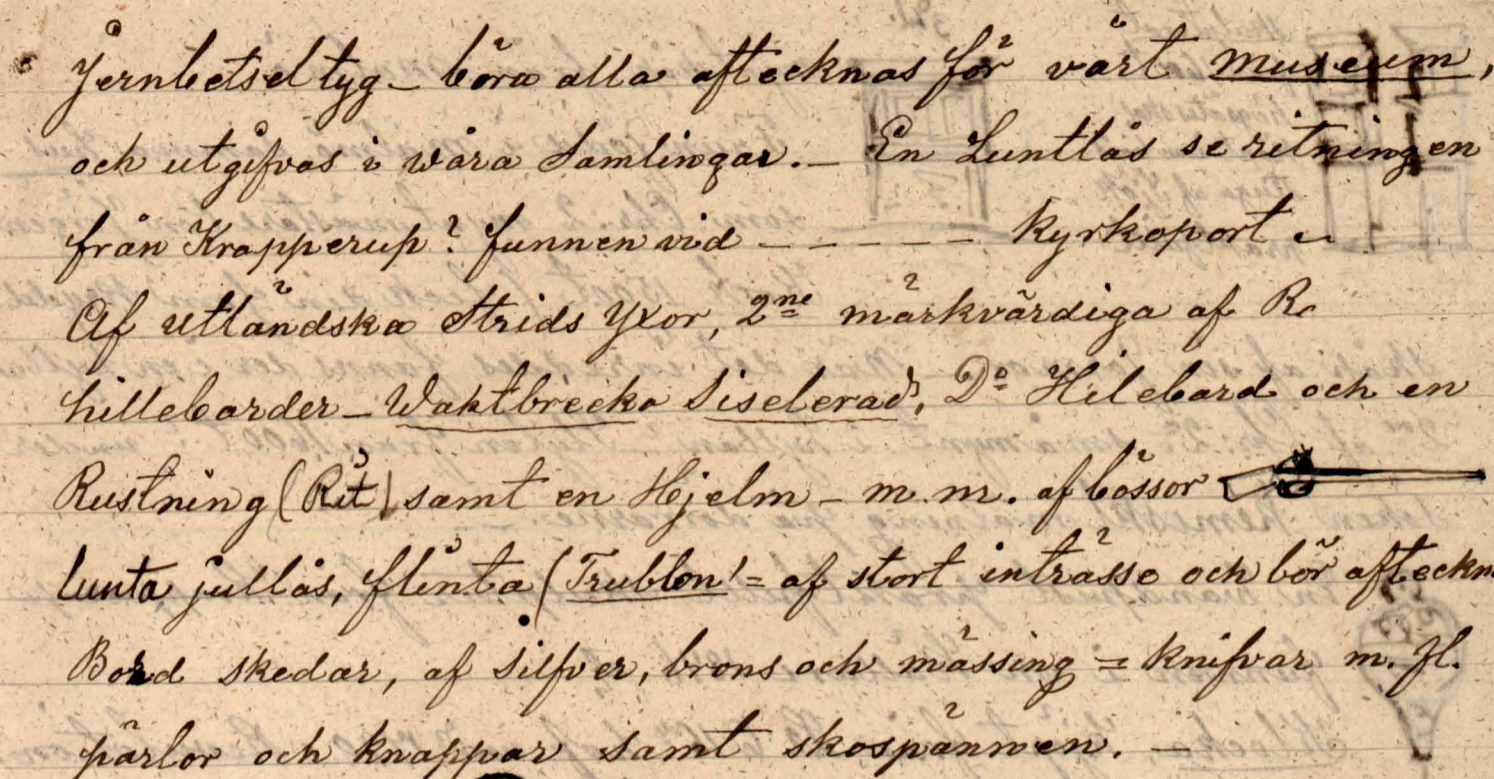 Jernbetseltyg – böra alla aftecknas för vårt museum,
och utgifvas i våra Samlingar. – En Luntlås se ritningen
från Krapperup? funnen vid – – – – – Kyrkoport –
Af utländska Strids Yxor, 2ne märkvärdiga af
hillebarder – Waktbrecka Siselerad, Do Hilebard och en
Rustning (Rit) samt en Hjelm – m.m. af bössor
lunta jullås, flinta (Trublon' = af stort inträsse och bör afteckn
Bord skedar, af Silfver, brons och mässing = knifvar m. fl.
pärlor och knappar samt skospännen. –